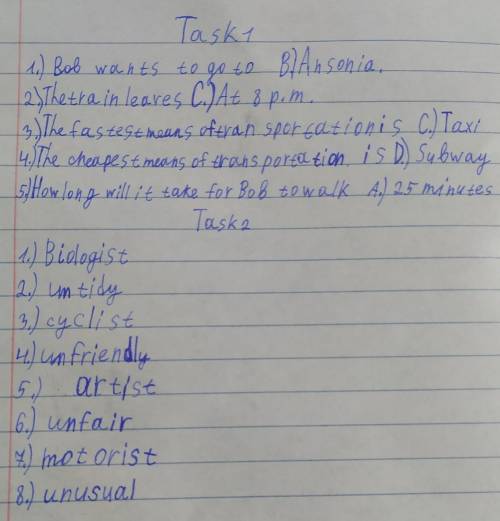 Task1
1.) Bob wants to go to B)Ansonia.
2)The train leaves C.)At 8 p.m.
3.)The fastest means of tran sportation is C.) Taxi
4.)The cheapest means of transportation is D.) Subway
5.)How long will it take for Bob to walk A.) 25 minutes
Task2
1.) Biologist
2.) untidy
3.) cyclist
4.) unfriendly
5.) artist
6.) unfair
7.) motorist
8.) unusual